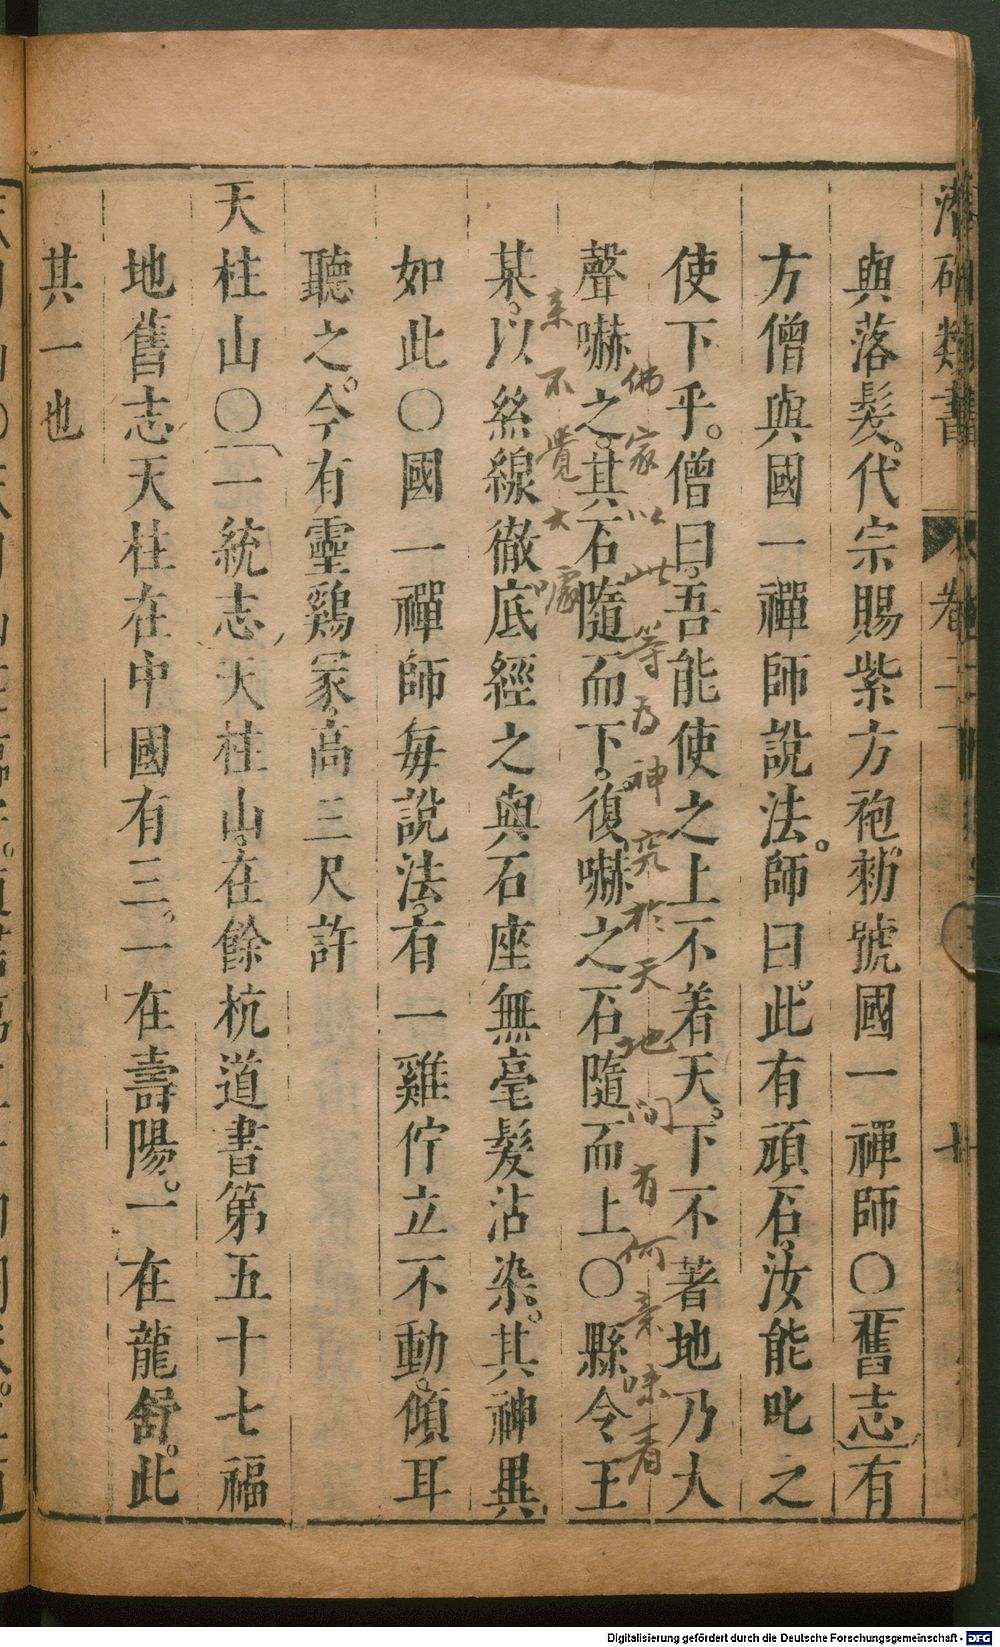 潛確類書 卷二十
與落髮代宗賜紫方袍勑號國一禪師〇舊志有
方僧與國一禪師說法師曰此有頑石汝能叱之
使下乎僧曰吾能使之上不着天下不著地乃大
聲嚇之其石隨而下復嚇之石隨而上〇縣令王
佛家以此等為神究於天地間有何意味看
某以絲線徹底經之與石座無毫髮沾染其神異
來不覺大噱
如此〇國一禪師每說法有一雞佇立不動傾耳
聽之今有靈鷄冢高三尺許
天柱山〇一統志天柱山在餘杭道書第五十七福
地舊志天柱在中國有三一在壽陽一在龍舒此
其一也
Digitalisierung gefördert durch die Deutsche Forschungsgemeinschaft - DFG